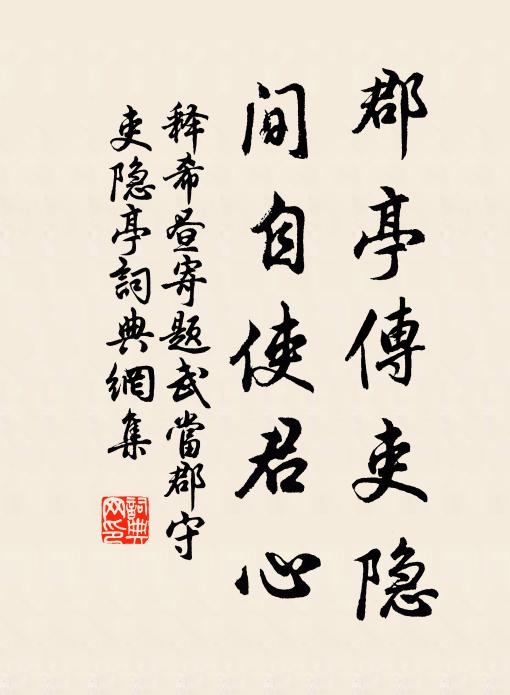 郡亭傳吏隐
间自使君心
释希昼寄题武當郡守
吏隐亭詞典網集
詞典网印